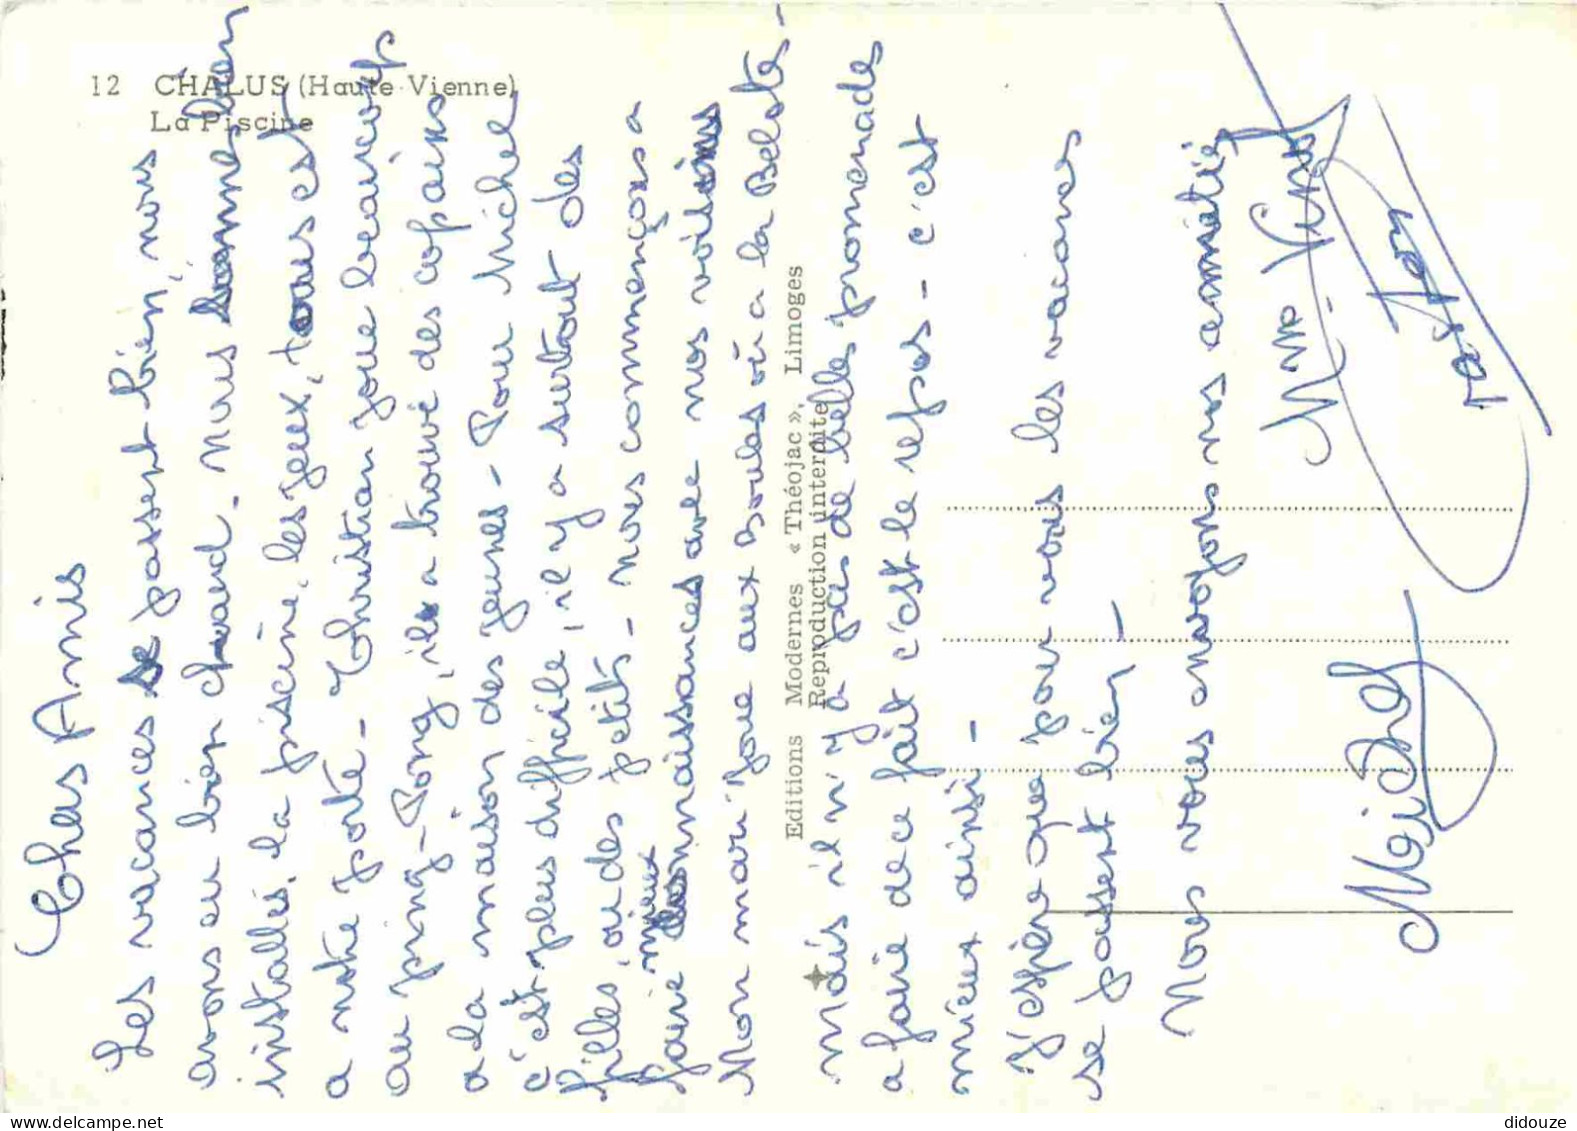 12 CHALUS (Haute Vienne)
La Piscine
Editions Modernes « Théojac », Limoges
Reproduction interdite
Chers Amis
Les vacances se passent bien, nous
avons eu bien chaud. nous sommes bien
installés, la piscine, les jeux, tous est
a notre porte - Christian joue beaucoup
au ping-Pong, il a trouvé des copains
a la maison des jeunes - Pour Michel
c'est plus difficile, il y a surtout des
filles, ou des petits - nous commençons a
faire mieux connaissances avec nos voisins
Mon mari joue aux Boules où a la Belote -
mais il n'y a pas de belles promenades
a faire de ce fait c'est le repos - c'est
mieux ainsi -
J'espère que pour vous les vacances
se passent bien -
Nous vous envoyons nos amitiés
Michel